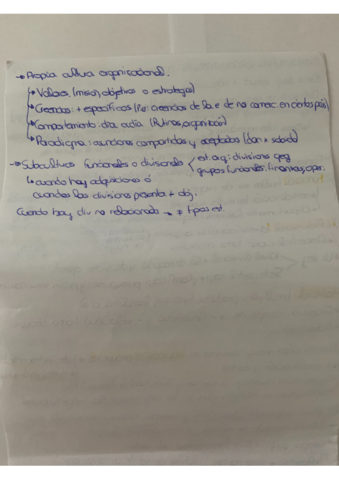 → Propia cultura organizacional.
→ Valores (misión, objetivos o estrategias)
→ Creencias: + específicas (Pe: creencias de la e de no comerc. en ciertos país)
→ Comportamiento día a día (Rutinas, organización)
→ Paradigma: asunciones compartidas y aceptadas (dan x sabido)
→ Subculturas funcionales o divisionales < est. org: divisiones geog
grupos funcionales: finanzas, oper.
↳ cuando hay adquisiciones o
cuando las divisiones presenta ≠ obj.
Cuando hay div no relacionada → ≠ tipos est.